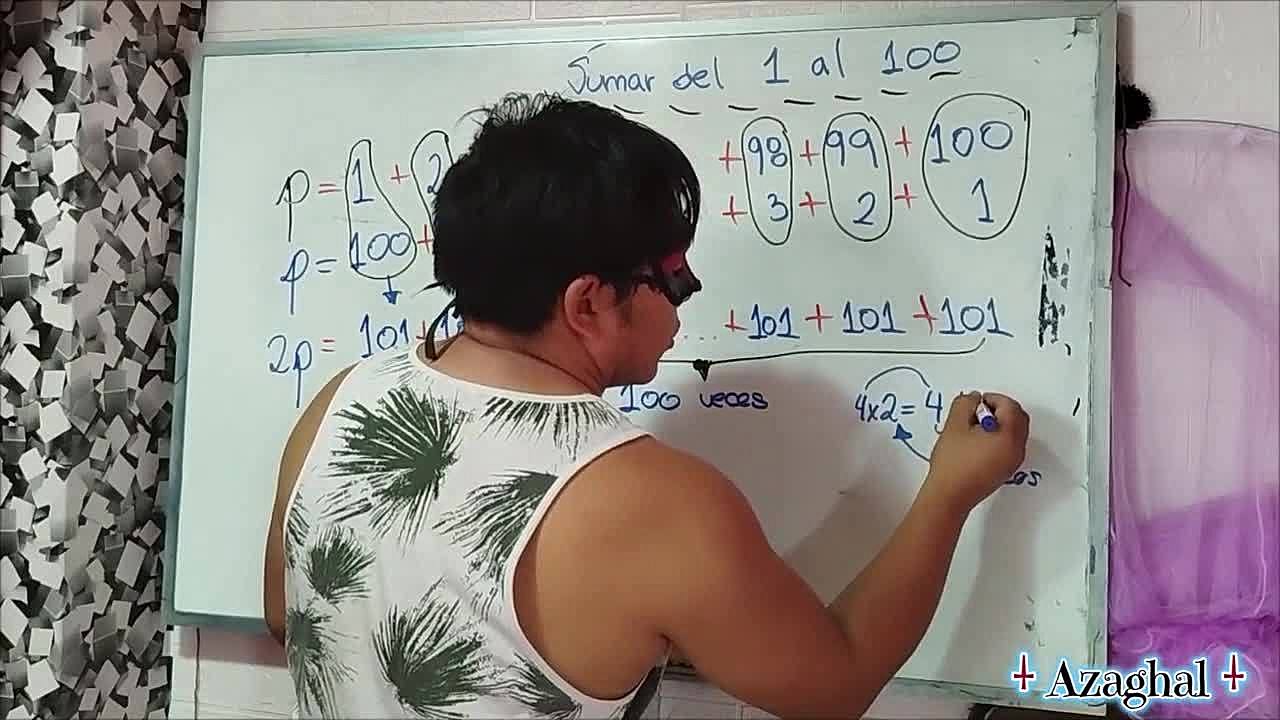 Sumar del 1 al 100
p = 1 + 2 + 98 + 99 + 100
p = 100 + + 3 + 2 + 1
2p = 101 + ... + 101 + 101 + 101
100 veces
4x2 = 4
✝ Azaghal ✝